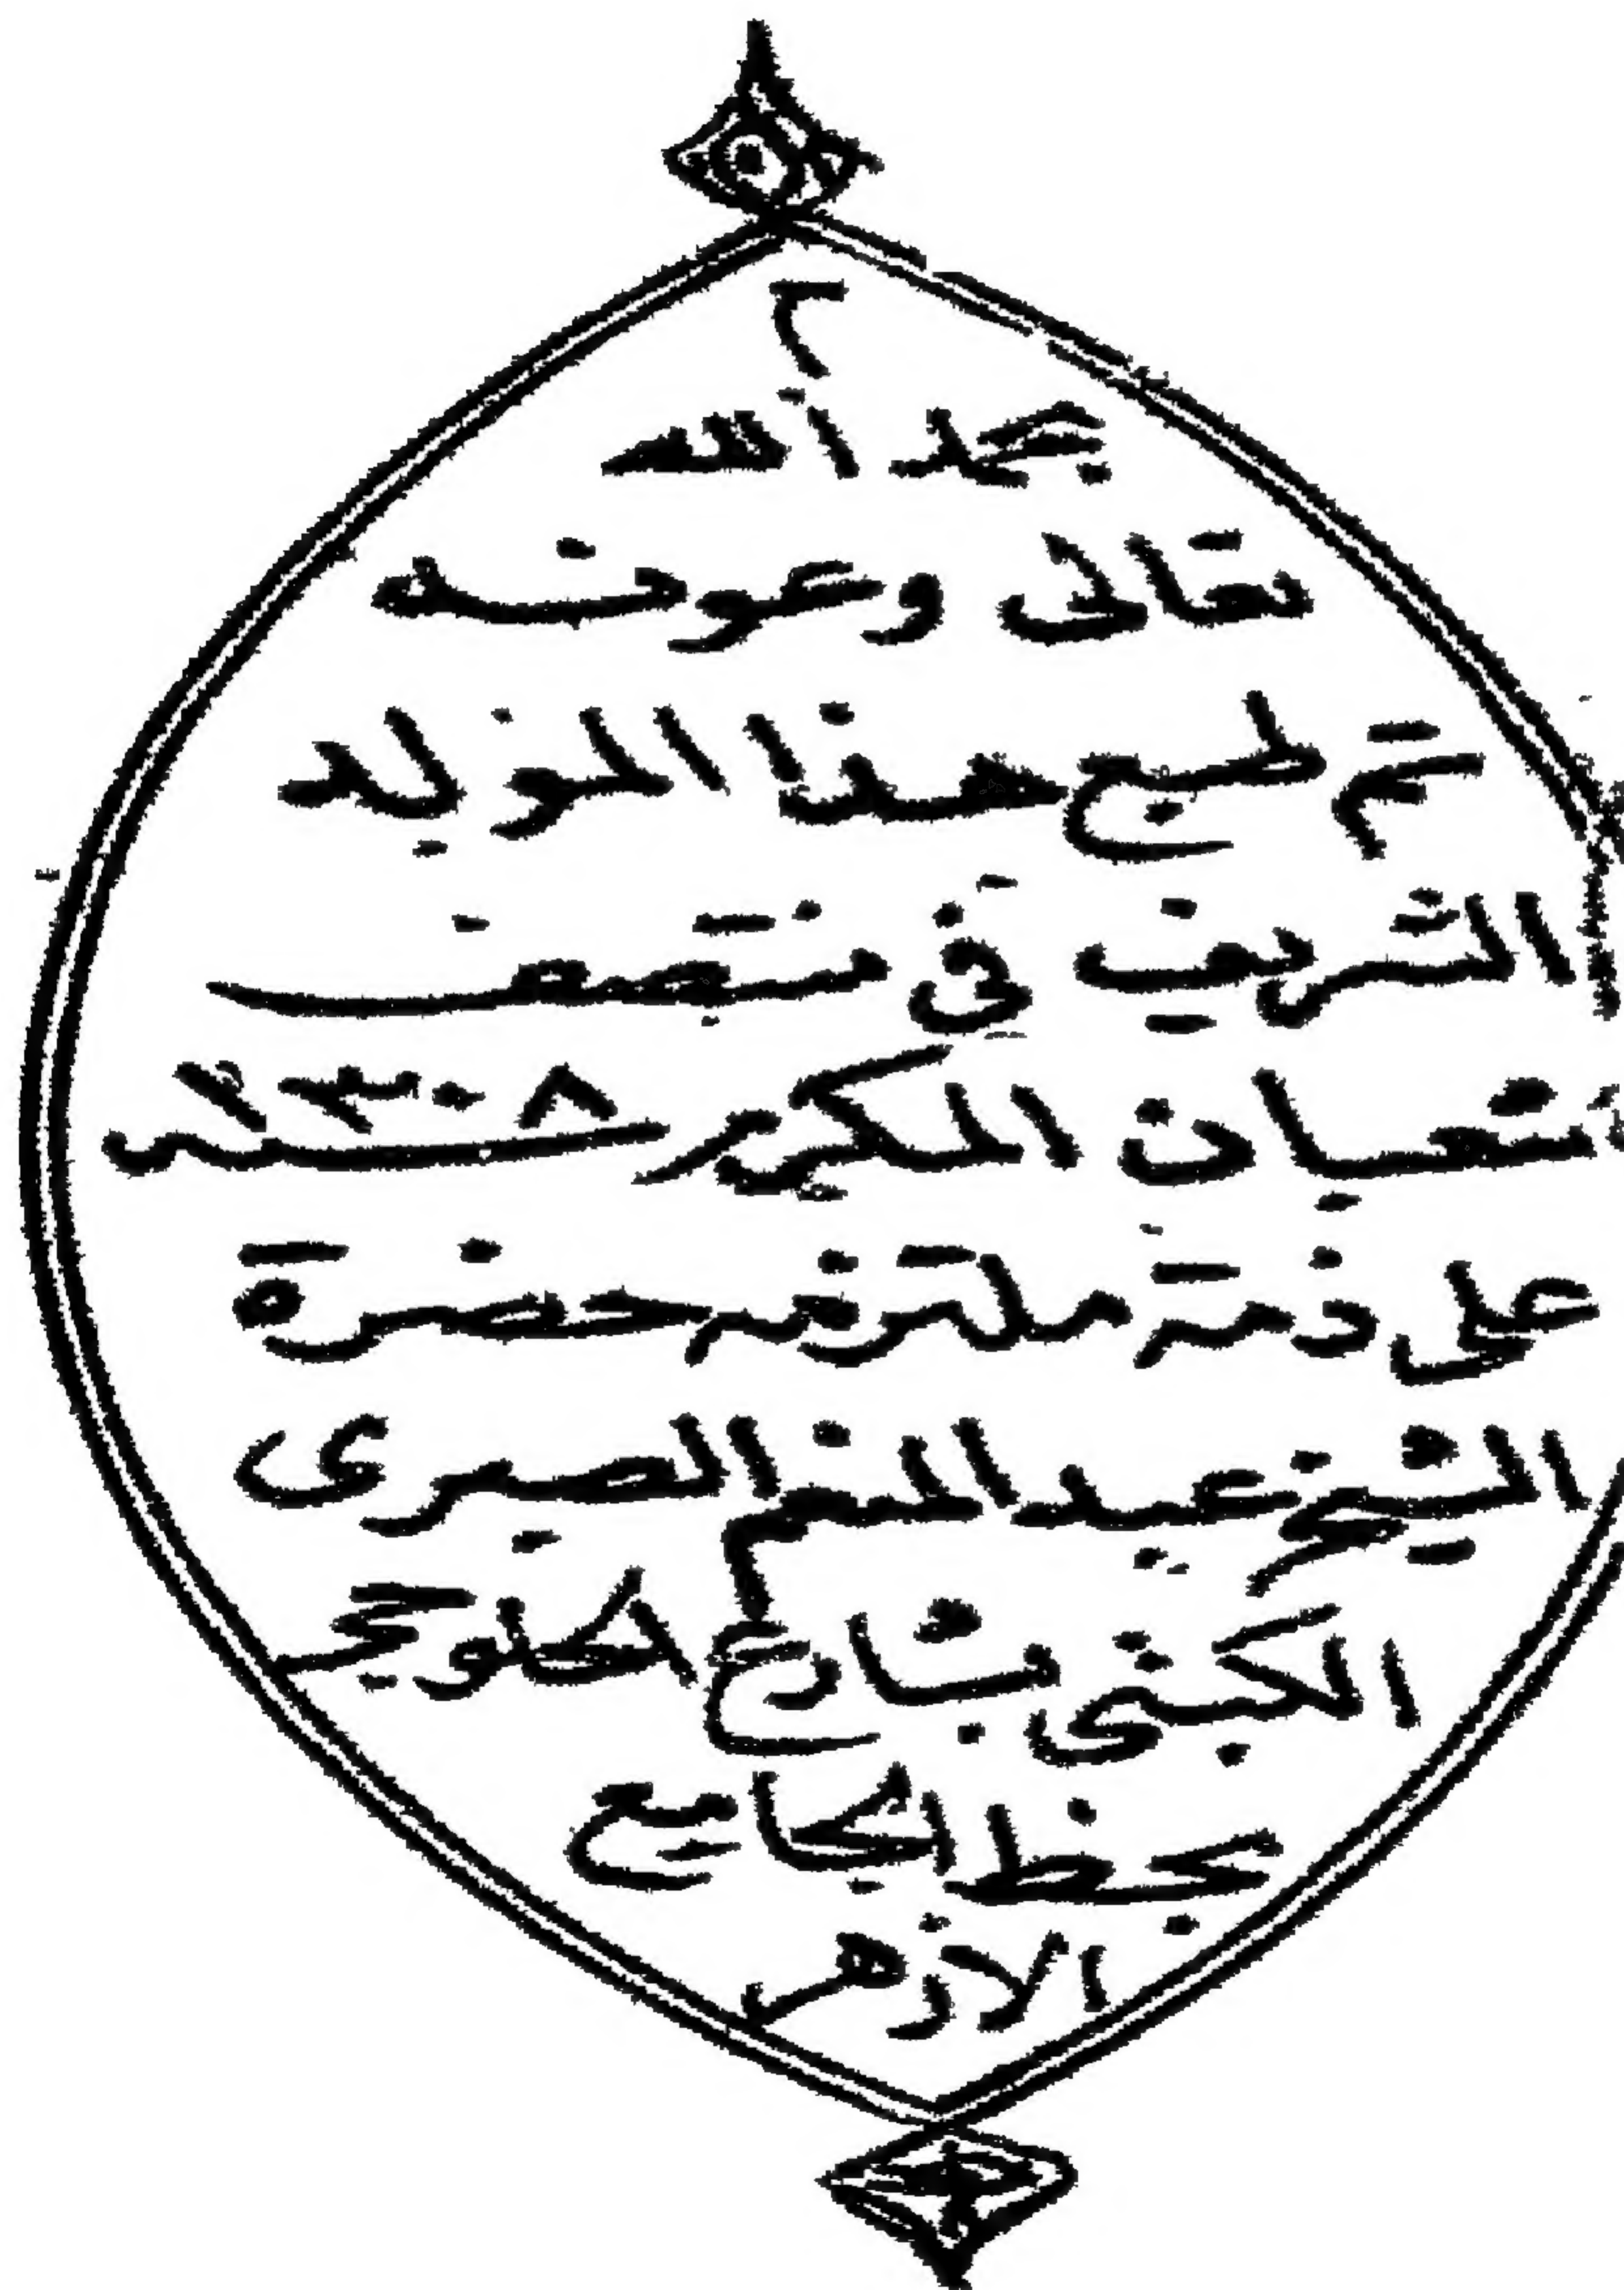 م
بحمد الله
تعالى وعونه
تم طبع هذا المولد
الشريف فى منتصف
شعبان المكرم سنة ١٣٠٨
على ذمة ملتزمه حضرة
الشيخ عبد المنعم الصبرى
الكتبى بشارع الحلوجى
بخط الجامع
الازهر